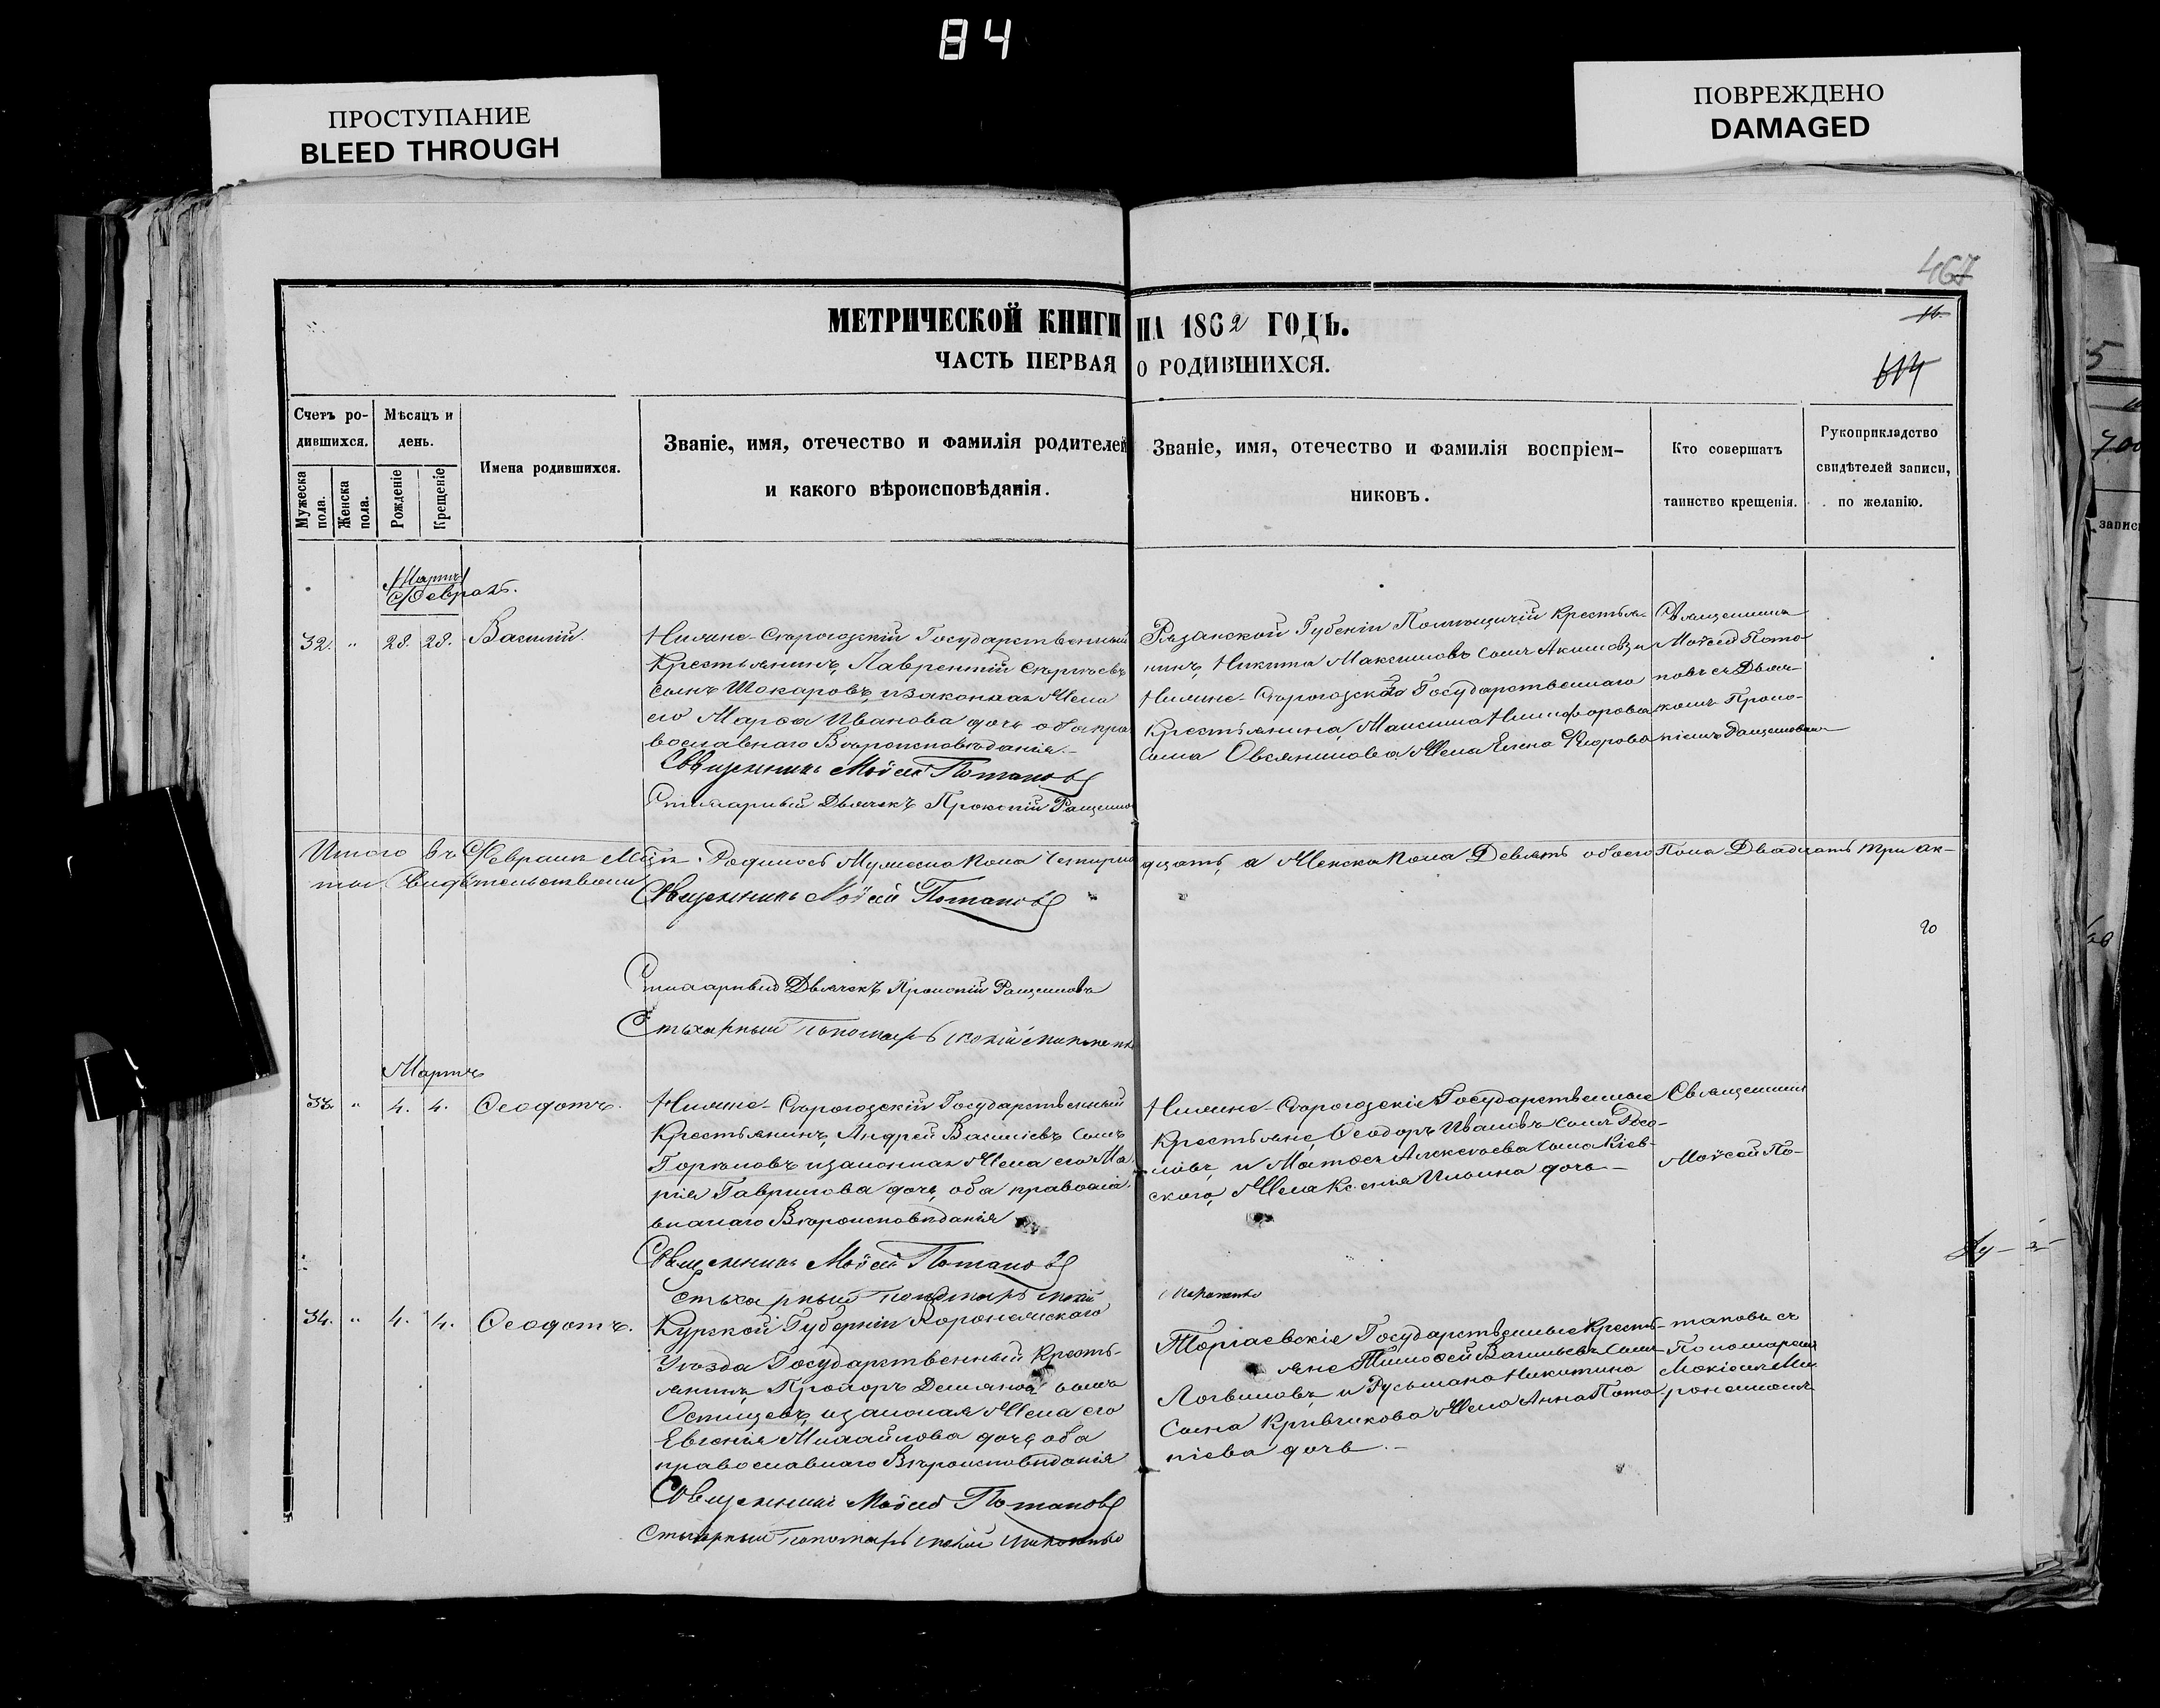 84
ПРОСТУПАНИЕ
BLEED THROUGH
ПОВРЕЖДЕНО
DAMAGED
467
МЕТРИЧЕСКОЙ КНИГИ НА 1862 ГОДЪ.
16
ЧАСТЬ ПЕРВАЯ О РОДИВШИХСЯ.
614
Счетъ ро-
дившихся.
Мужеска пола.
Женска пола.
Мѣсяцъ и
день.
Рожденіе
Крещеніе
Имена родившихся.
Званіе, имя, отечество и фамилія родителей
и какого вѣроисповѣданія.
Званіе, имя, отечество и фамилія воспріем-
никовъ.
Кто совершатъ
таинство крещенія.
Рукоприкладство
свидѣтелей записи,
по желанію.
Мартъ
Февраль.
32. " 28. 28. Василій.
Нижне-Сѣрогозскій Государственный
Крестьянинъ, Лаврентій Сергѣевъ
сынъ Шокаровъ, и законная Жена
его Марѳа Иванова дочь оба пра
вославнаго Вѣроисповѣданія.-
Священникъ Мойсей Потаповъ
Стихарный Дьячекъ Прокопій
Рязанской Губеніи Помющичій Крестья-
нинъ, Никита Максимовъ сынъ и
Нижне-Сѣрогозскаго Государственнаго
Крестьянина, Максима Никифорова
сына Овсяникова Жена Елена
Священникъ
Мойсей Пота-
повъ съ Дьяч-
комъ Проко-
піемъ
Итого въ Февралѣ М-цѣ. Родилось Мужеска Пола Четырна дцать, а Женска Пола Девять обоего Пола Двадцать три ак-
ты Свидѣтельствомъ
Священникъ Мойсей Потаповъ
20
Стихарный Дьячекъ Прокопій
Стихарный Пономарь
Мартъ
33. " 4. 4. Ѳеодотъ.
Нижне-Сѣрогозскій Государственный
Крестьянинъ, Андрей Василіевъ сынъ
Горѣловъ и законная Жена его Ма
рія Гаврилова дочь, оба правосла-
внаго Вѣроисповѣданія
Священникъ Мойсей Потаповъ
Стихарный Пономарь
Нижне-Сѣрогозскіе Государственные
Крестьяне, Ѳеодоръ Ивановъ сынъ
и Матвея Алексѣева сына Кіев-
скаго, Жена Ксенія Ильина дочь-
Священникъ
Мойсей По-
34. " 4. 4. Ѳеодотъ.
Курской Губерніи
Уѣзда Государственный Кресть-
янинъ, Прохоръ Демяновъ сынъ
Остищевъ, и законая Жена его
Евгенія Михайлова дочь, оба
православнаго Вѣроисповѣданія
Священникъ Мойсей Потаповъ
Стихарный Пономарь
Торгаевскіе Государственные Кресть-
яне Тимоѳей Васильевъ сынъ
Логвиновъ, и Никитина
Сына Кривчикова Жена Анна Пота-
піева дочь.-
таповъ съ
Пономаремъ
Мокіемъ Ми-
роненкомъ